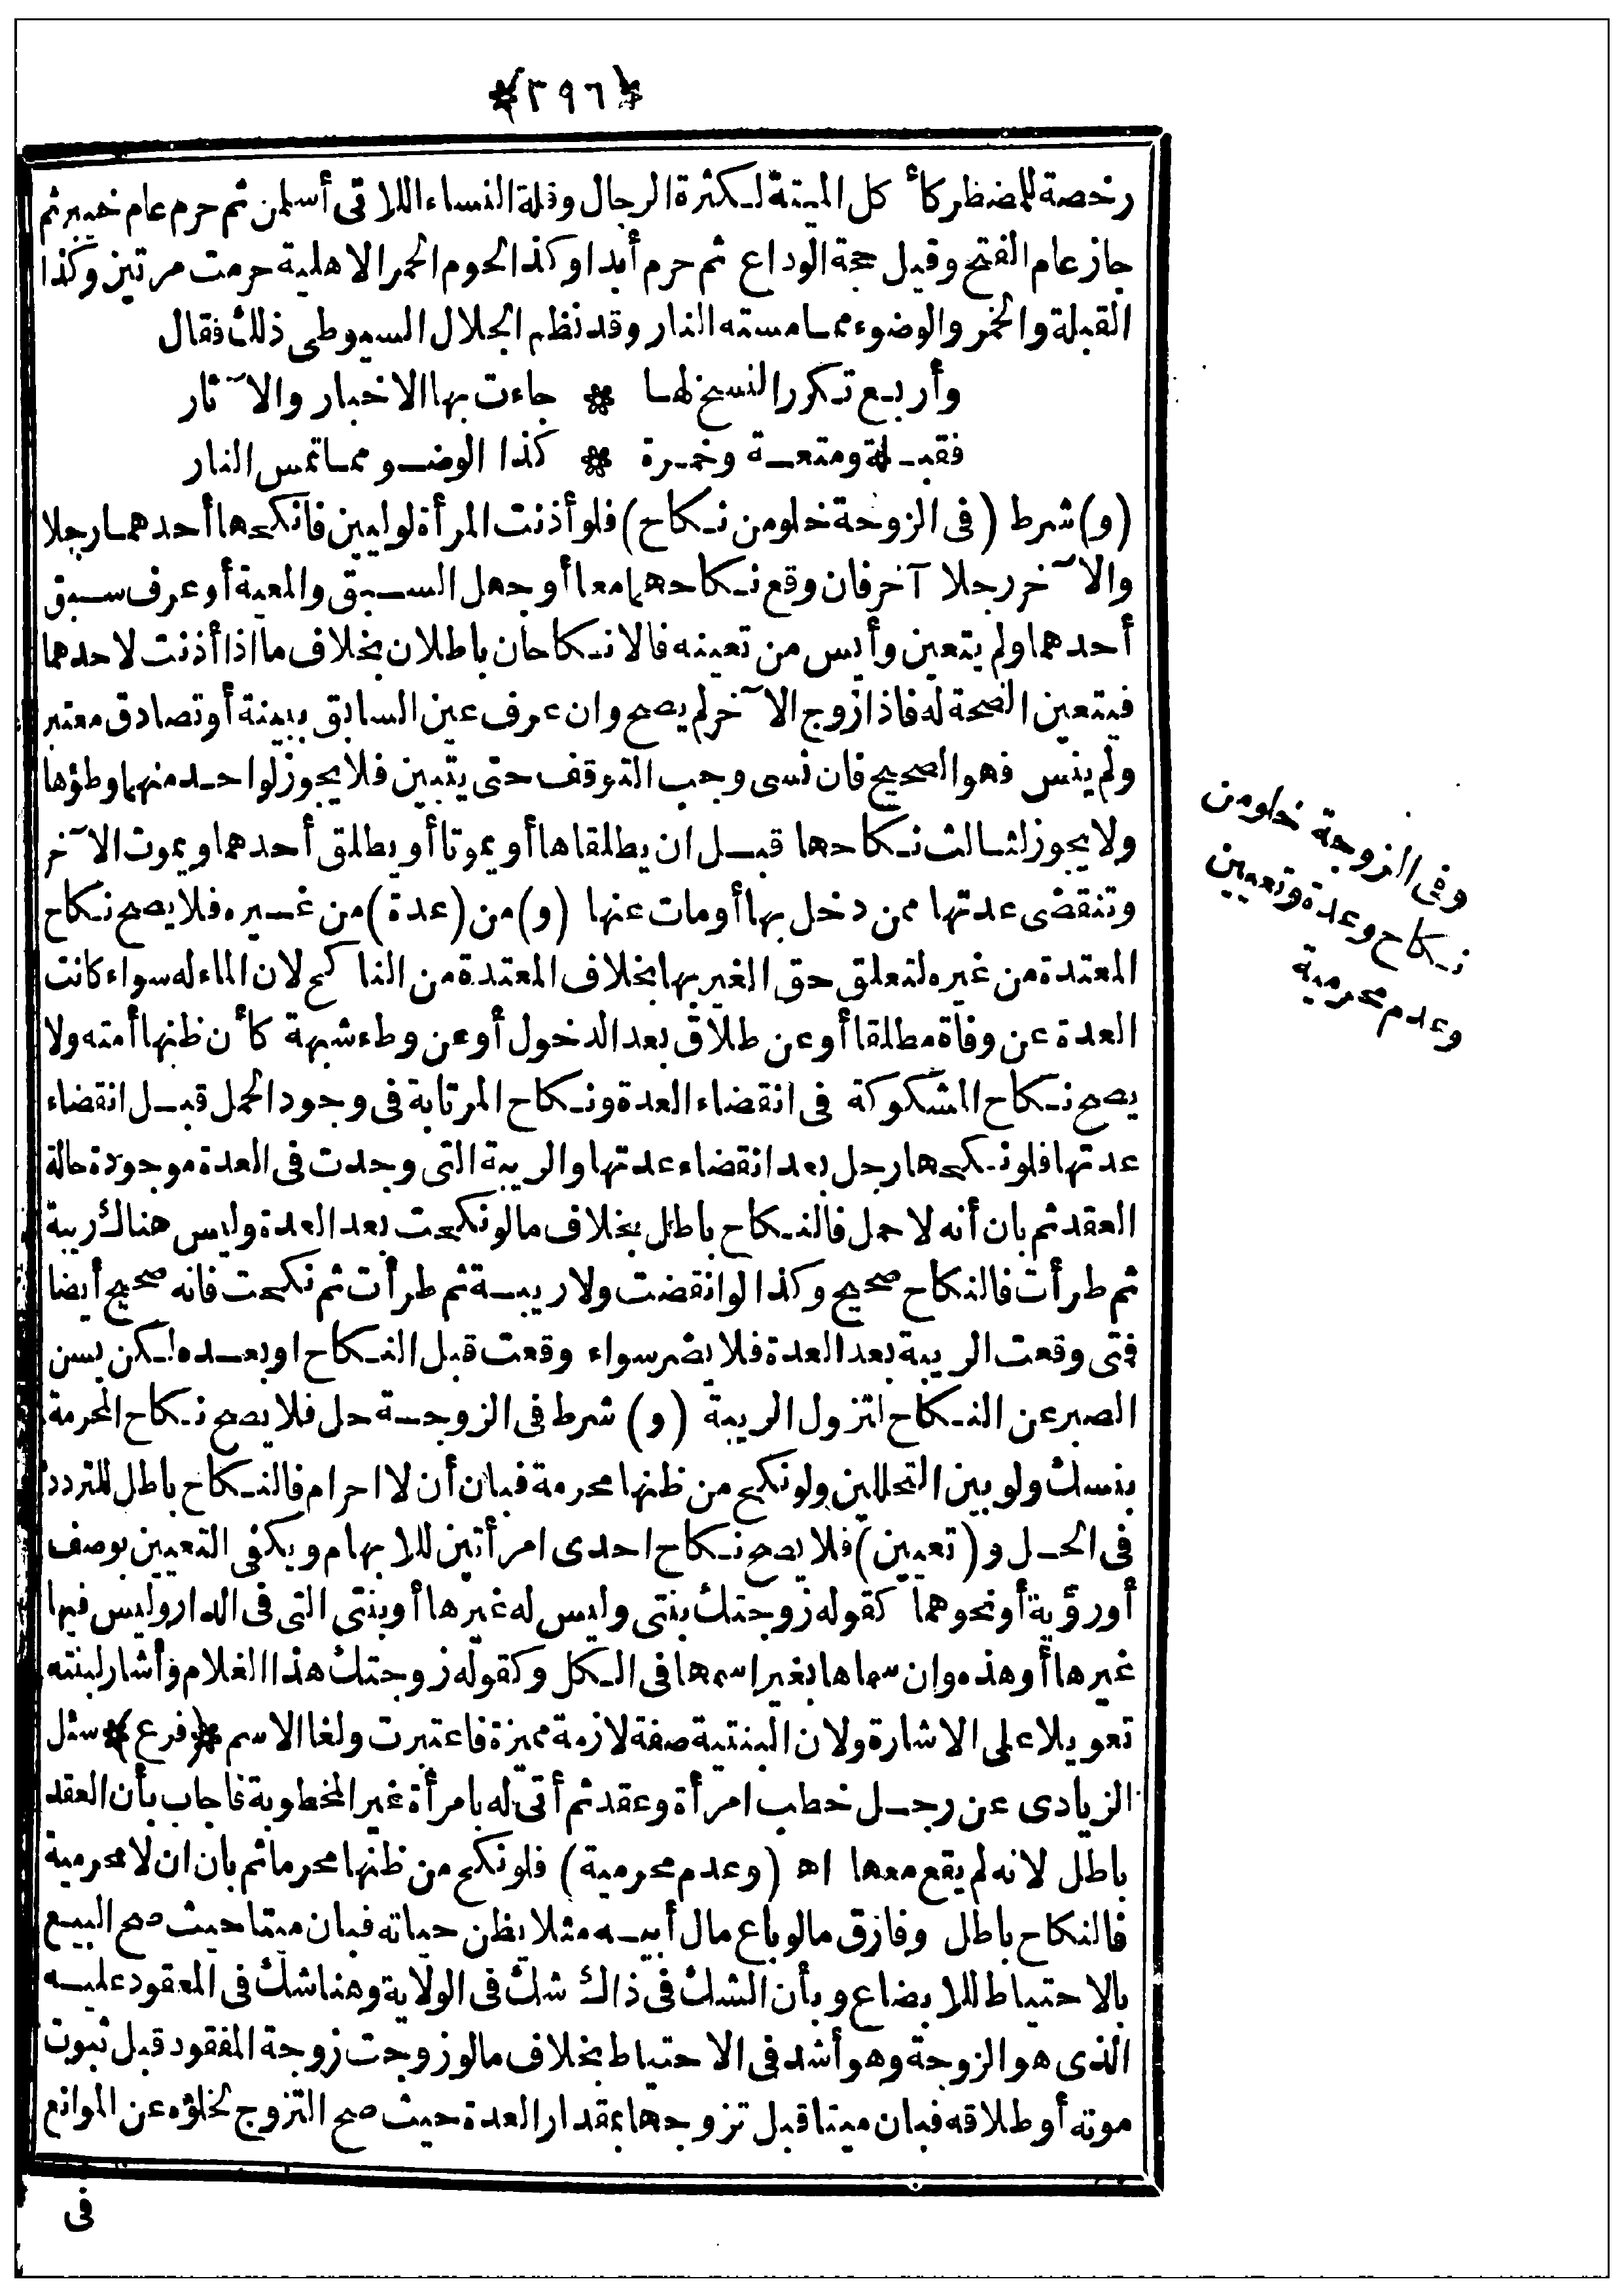 ﴿٢٩٦﴾
رخصة للمضطر كأكل الميتة لكثرة الرجال وقلة النساء اللاتى أسلمن ثم حرم عام خيبر ثم
جاز عام الفتح وقيل حجة الوداع ثم حرم أبدا وكذا لحوم الحمر الاهلية حرمت مرتين وكذا
القبلة والخمر والوضوء مما مسته النار وقد نظم الجلال السيوطى ذلك فقال
وأربع تكرر النسخ لها * جاءت بها الاخبار والآثار
فقبلة ومتعة وخمرة * كذا الوضو مما تمس النار
(و) شرط (فى الزوجة خلو من نكاح) فلو أذنت المرأة لوليين فانكحها أحدهما رجلا
والآخر رجلا آخر فان وقع نكاحهما معا أو جهل السبق والمعية أو عرف سبق
أحدهما ولم يتعين وأيس من تعينه فالانكاحان باطلان بخلاف ما اذا أذنت لاحدهما
فيتعين الصحة له فاذا زوج الآخر لم يصح وان عرف عين السابق ببينة أو تصادق معتبر
ولم ينس فهو الصحيح فان نسى وجب التوقف حتى يتبين فلا يجوز لواحد منهما وطؤها
ولا يجوز لثالث نكاحها قبل ان يطلقاها أو يموتا أو يطلق أحدهما ويموت الآخر
وتنقضى عدتها ممن دخل بها أو مات عنها (و) من (عدة) من غيره فلا يصح نكاح
المعتدة من غيره لتعلق حق الغير بها بخلاف المعتدة من الناكح لان الماء له سواء كانت
العدة عن وفاة مطلقا أو عن طلاق بعد الدخول أو عن وطء شبهة كأن ظنها أمته ولا
يصح نكاح المشكوكة فى انقضاء العدة ونكاح المرتابة فى وجود الحمل قبل انقضاء
عدتها فلو نكحها رجل بعد انقضاء عدتها والريبة التى وجدت فى العدة موجودة حالة
العقد ثم بان أنه لا حمل فالنكاح باطل بخلاف ما لو نكحت بعد العدة وليس هناك ريبة
ثم طرأت فالنكاح صحيح وكذا لو انقضت ولا ريبة ثم طرأت ثم نكحت فانه صحيح أيضا
فتى وقعت الريبة بعد العدة فلا يضر سواء وقعت قبل النكاح او بعده لكن يسن
الصبر عن النكاح لتزول الريبة (و) شرط فى الزوجة حل فلا يصح نكاح المحرمة
بنسك ولو بين التحللين ولو نكح من ظنها محرمة فبان أن لا احرام فالنكاح باطل للتردد
فى الحل و (تعيين) فلا يصح نكاح احدى امرأتين للابهام ويكفى التعيين بوصف
أو رؤية أو نحوهما كقوله زوجتك بنتى وليس له غيرها أو بنتى التى فى الدار وليس فيها
غيرها أو هذه وان سماها بغير اسمها فى الكل وكقوله زوجتك هذا الغلام وأشار لبنته
تعويلا على الاشارة ولان البنتية صفة لازمة مميزة فاعتبرت ولغا الاسم ﴿فرع﴾ سئل
الزيادى عن رجل خطب امرأة وعقد ثم أتى له بامرأة غير المخطوبة فاجاب بأن العقد
باطل لانه لم يقع معها اه (وعدم محرمية) فلو نكح من ظنها محرما ثم بان ان لا محرمية
فالنكاح باطل وفارق ما لو باع مال أبيه مثلا يظن حياته فبان ميتا حيث صح البيع
بالاحتياط للابضاع وبأن الشك فى ذاك شك فى الولاية وهنا شك فى المعقود عليه
الذى هو الزوجة وهو أشد فى الاحتياط بخلاف ما لو زوجت زوجة المفقود قبل ثبوت
موته أو طلاقه فبان ميتا قبل تزوجها بمقدار العدة حيث صح التزوج لخلوّه عن الموانع
فى
وفى الزوجة خلو من
نكاح وعدة وتعيين
وعدم محرمية